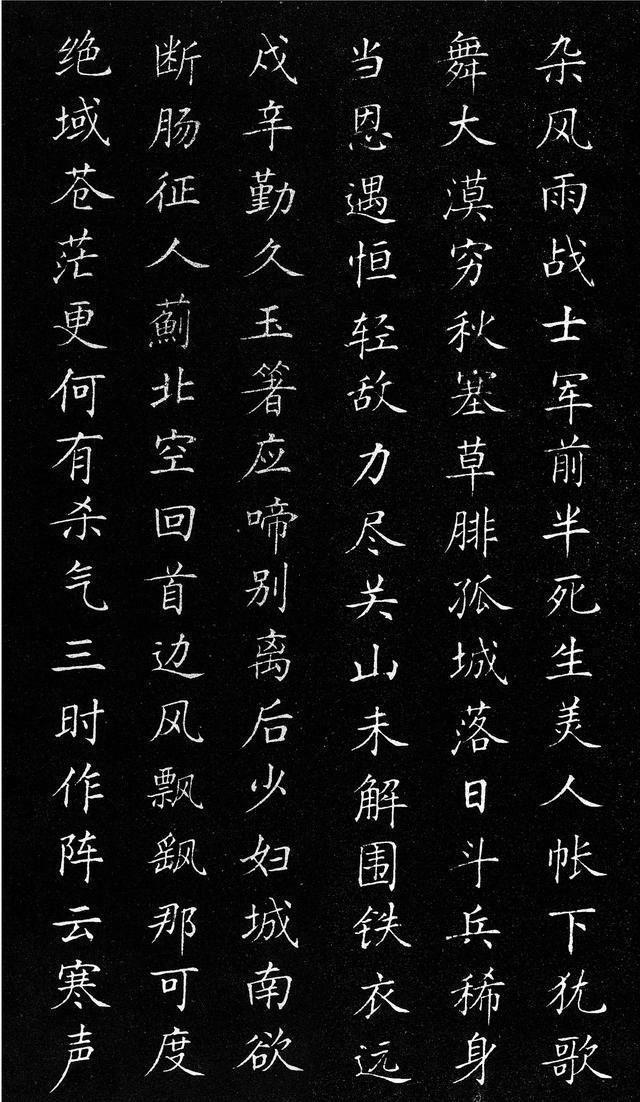 杂风雨战士军前半死生美人帐下犹歌
舞大漠穷秋塞草腓孤城落日斗兵稀身
当恩遇恒轻敌力尽关山未解围铁衣远
戍辛勤久玉箸应啼别离后少妇城南欲
断肠征人蓟北空回首边风飘飖那可度
绝域苍茫更何有杀气三时作阵云寒声